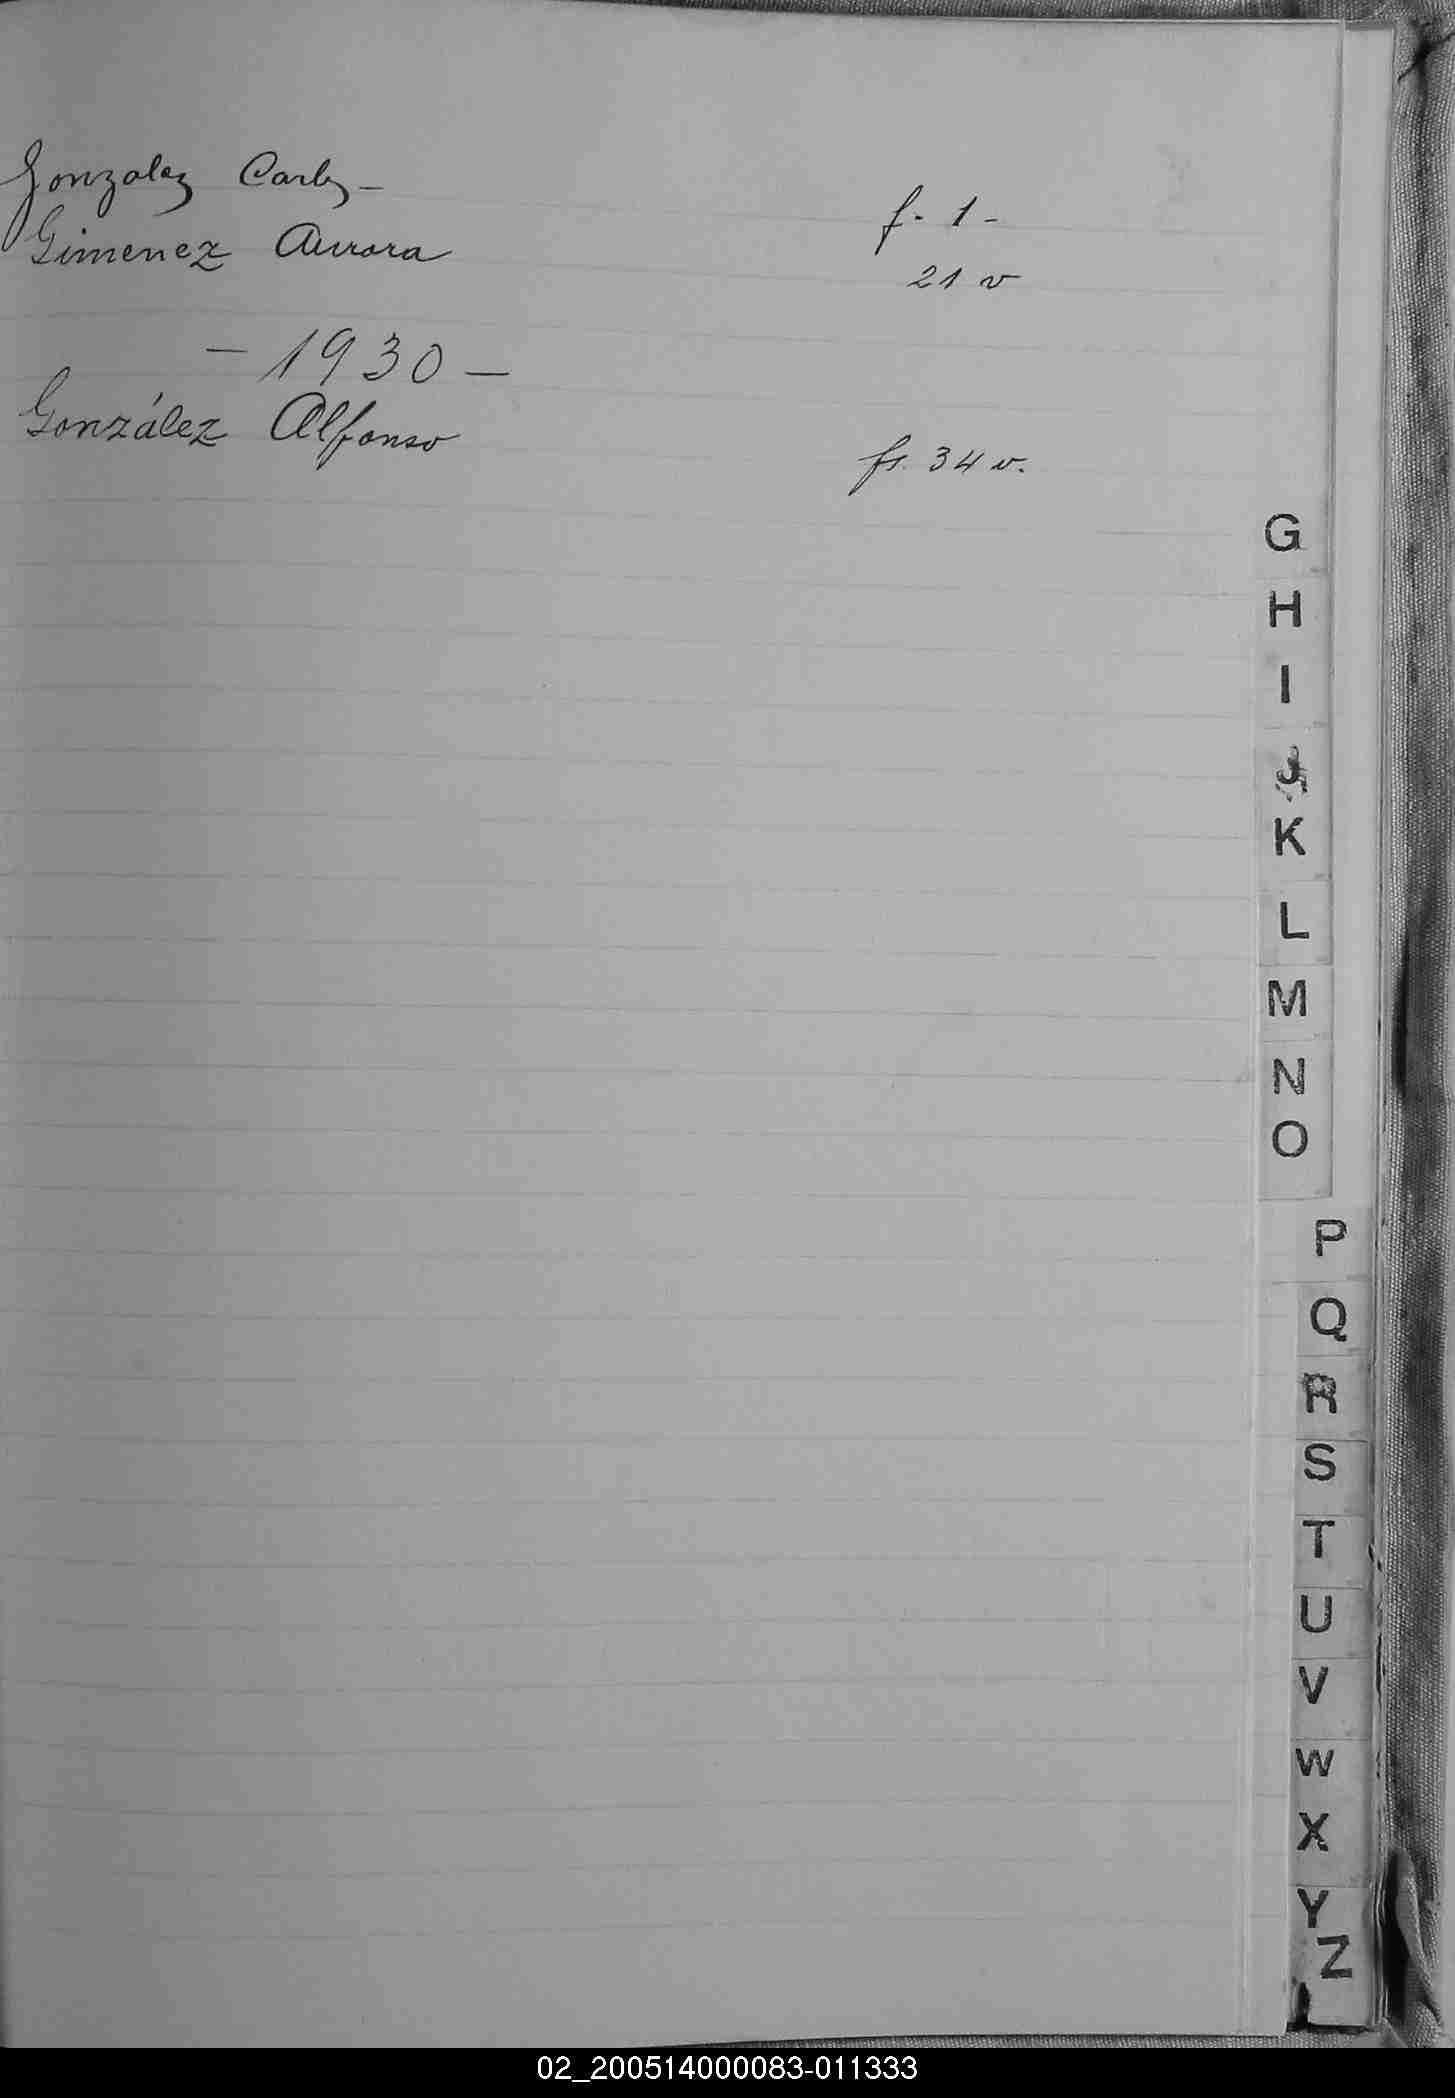 Gonzalez Carlos - f. 1 -
Gimenez Aurora 21 v
- 1930 -
González Alfonso fs. 34 v.
G
H
I
J
K
L
M
N
O
P
Q
R
S
T
U
V
W
X
Y
Z
02_200514000083-011333